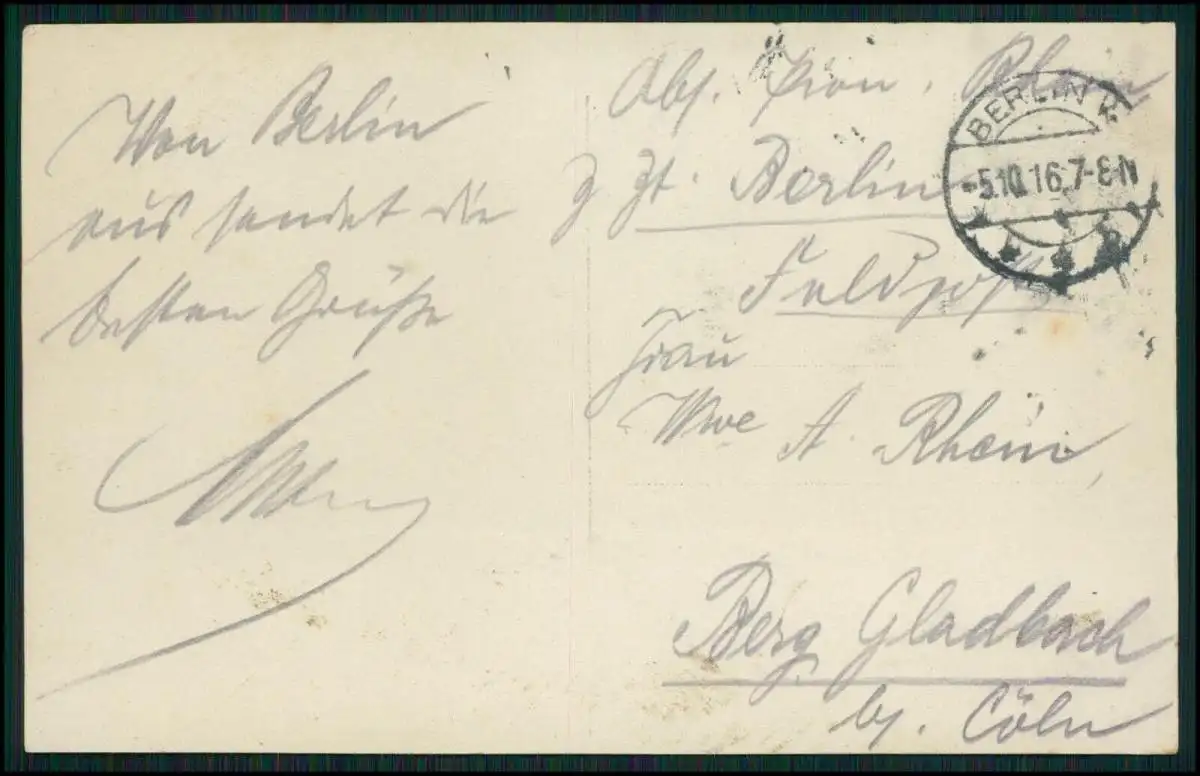 Von Berlin
aus sendet die
besten Grüße
Abs. Pion. Rhein
z Zt. Berlin
Feldpost
Frau
Wwe A. Rhein,
Berg Gladbach
bj. Cöln
BERLIN 2
-5.10.16.7-8N